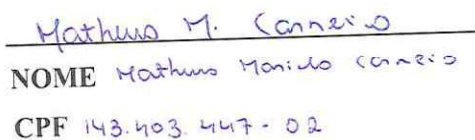 Matheus M. Carneiro
NOME Matheus Marido Carneiro
CPF 143.403.447-02